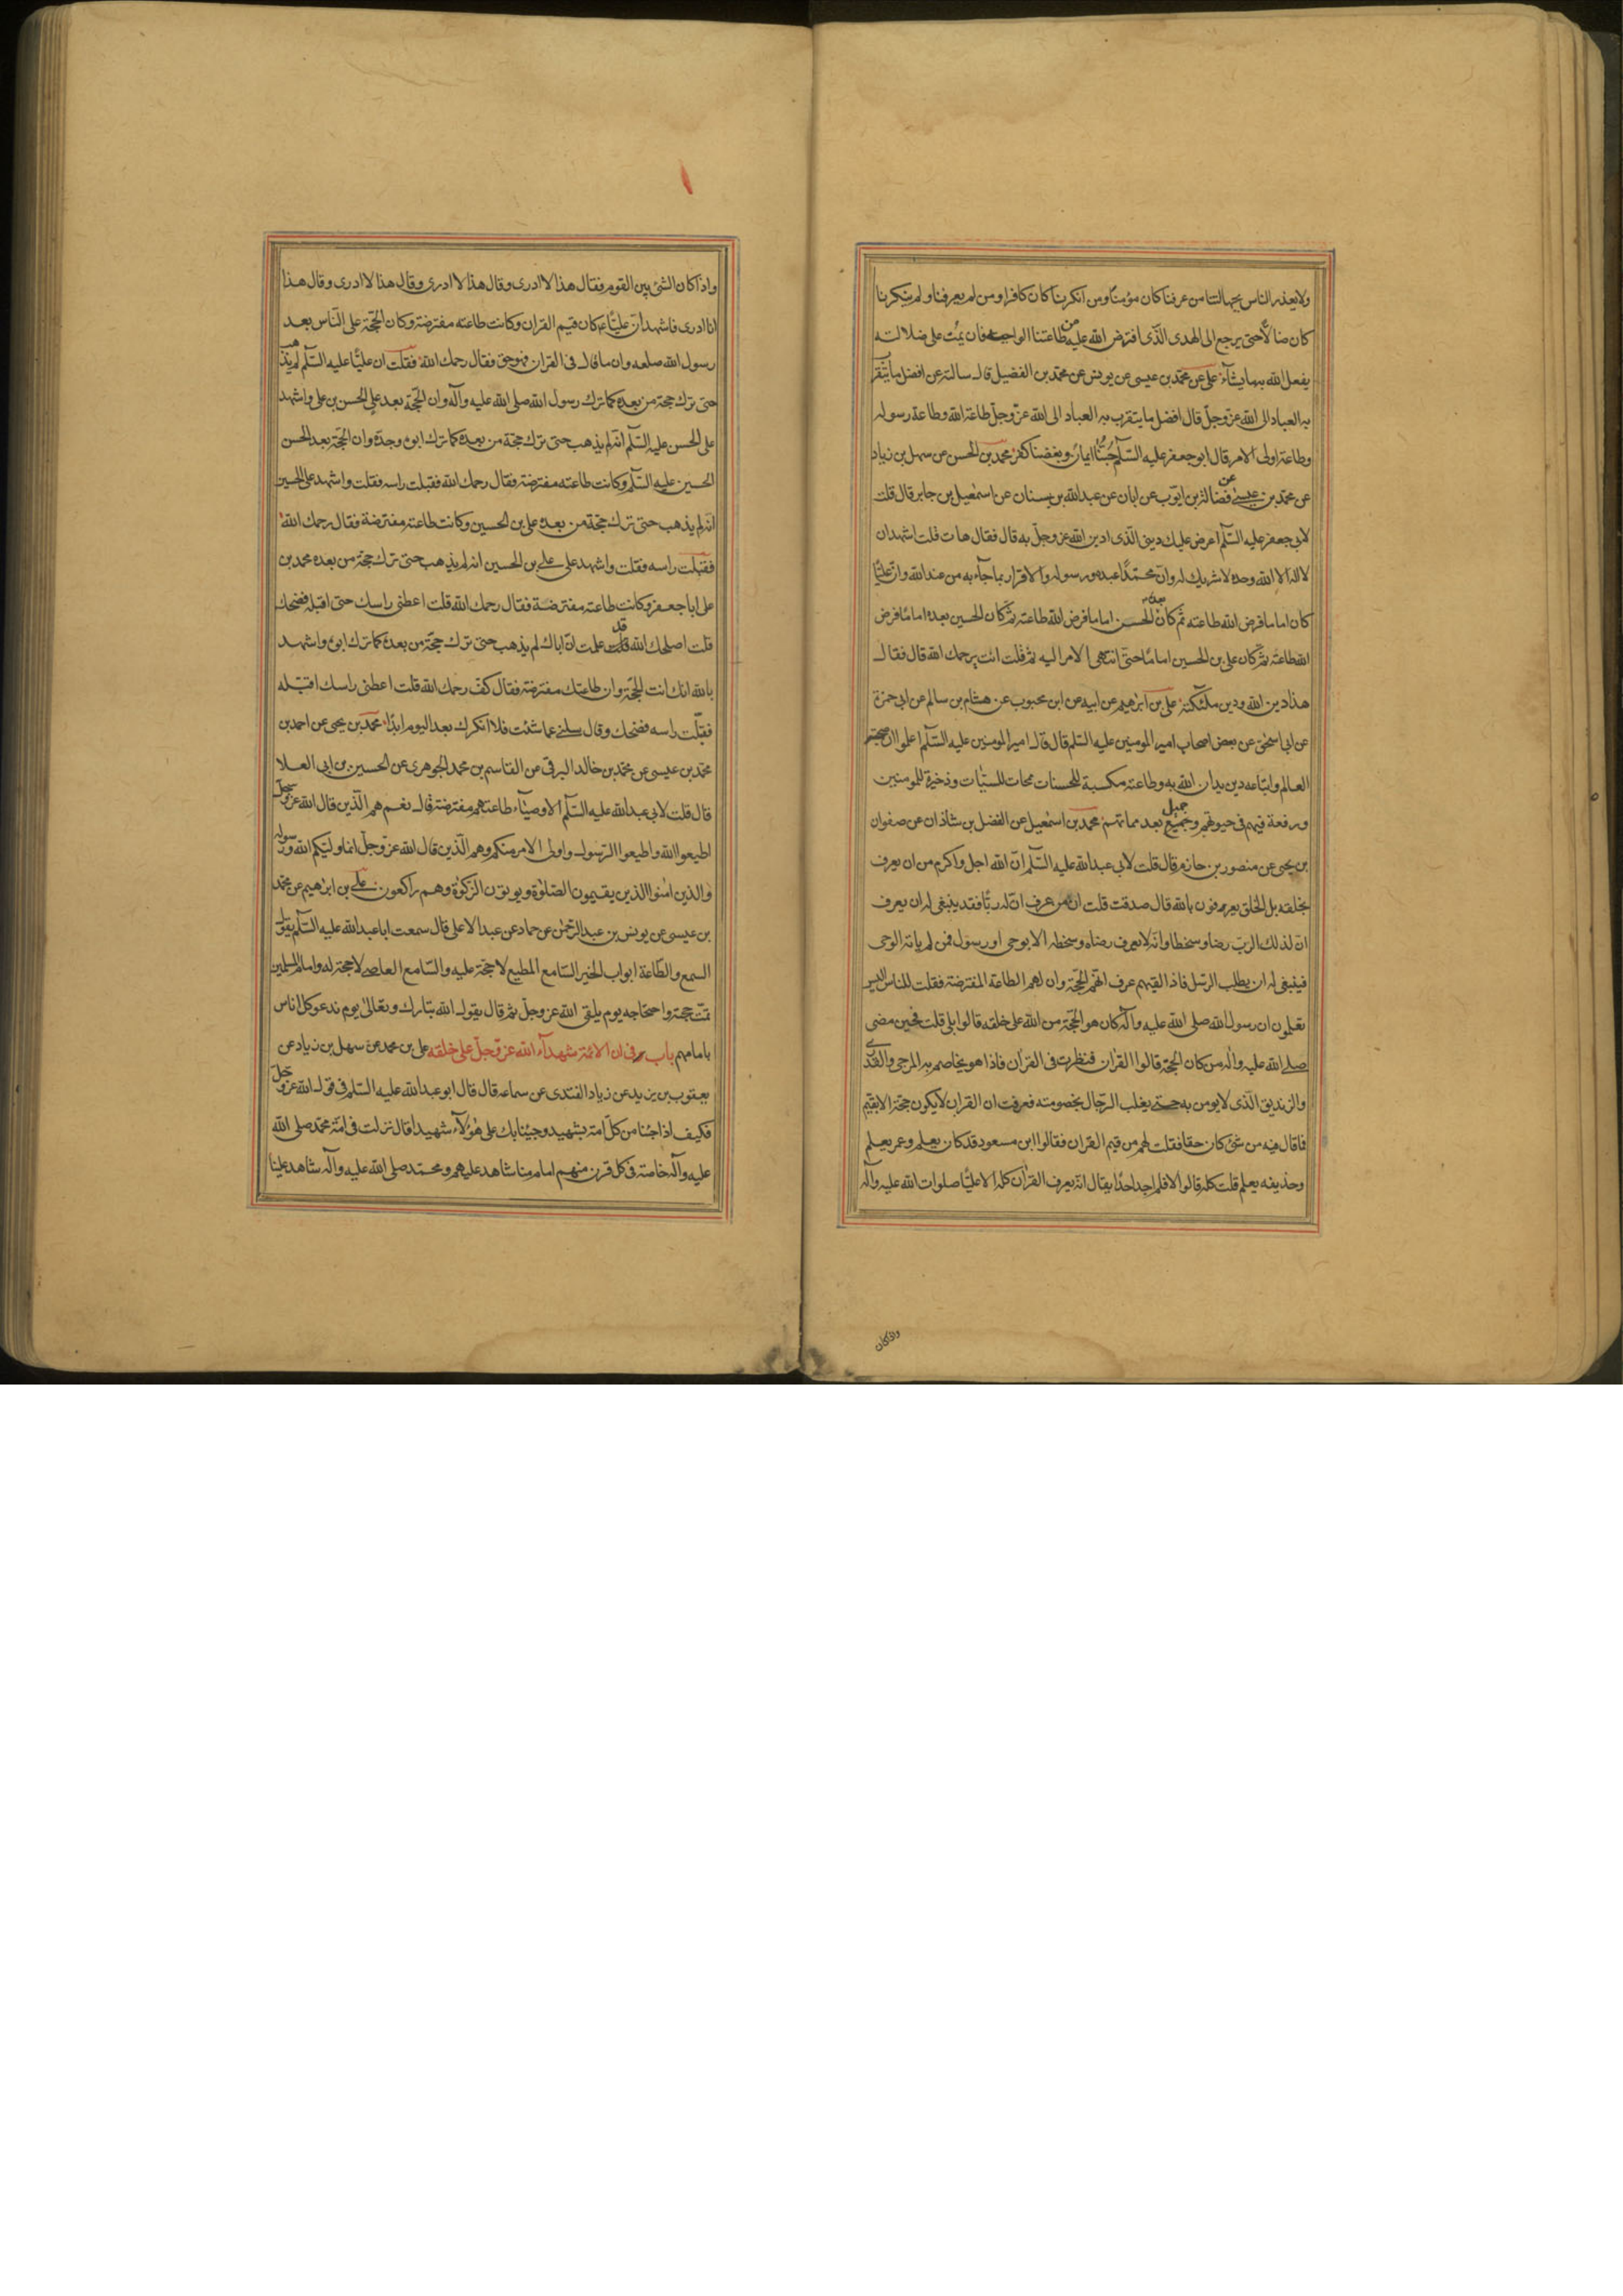 ولا يعذر الناس بجهالتنا من عرفنا كان مؤمنا ومن انكرنا كان كافرا ومن لم يعرفنا ولم ينكرنا
كان ضالا حتى يرجع الى الهدى الذى افترض الله عليه من طاعتنا الواجبه فان يمت على ضلالته
يفعل الله به ما يشآء على عن محمد بن عيسى عن يونس عن محمد بن الفضيل قال سالته عن افضل ما يتقرب
به العباد الى الله عز وجل قال افضل ما يتقرب به العباد الى الله عز وجل طاعة الله وطاعة رسوله
وطاعة اولى الامر قال ابو جعفر عليه السلم حبنا ايمان وبغضنا كفر محمد بن الحسن عن سهل بن زياد
عن محمد بن عيسى عن فضالة بن ايوب عن ابان عن عبد الله بن سنان عن اسمعيل بن جابر قال قلت
لابى جعفر عليه السلم اعرض عليك دينى الذى ادين الله عز وجل به قال فقال هات قلت اشهد ان
لا اله الا الله وحده لا شريك له وان محمدا عبده ورسوله والاقرار بما جآء به من عند الله وان عليا
كان اماما فرض الله طاعته ثم كان بعده الحسن اماما فرض الله طاعته ثم كان الحسين بعده اماما فرض
الله طاعته ثم كان على بن الحسين اماما حتى انتهى الامر اليه ثم قلت انت يرحمك الله قال فقال
هذا دين الله ودين ملئكته على بن ابرهيم عن ابيه عن ابن محبوب عن هشام بن سالم عن ابى حمزة
عن ابى اسحق عن بعض اصحاب امير المومنين عليه السلم قال قال امير المومنين عليه السلم اعلموا ان صحبة
العالم واتباعه دين يدان الله به وطاعته مكسبة للحسنات ممحات للسيئات وذخيرة للمومنين
ورفعة فيهم فى حيوتهم وجميل بعد مماتهم محمد بن اسمعيل عن الفضل بن شاذان عن صفوان
بن يحيى عن منصور بن حازم قال قلت لابى عبد الله عليه السلم ان الله اجل واكرم من ان يعرف
بخلقه بل الخلق يعرفون بالله قال صدقت قلت ان من عرف ان له ربا فقد ينبغى له ان يعرف
ان لذلك الرب رضا وسخطا وانه لا يعرف رضاه وسخطه الا بوحى او رسول فمن لم ياته الوحى
فينبغى له ان يطلب الرسل فاذا لقيهم عرف انهم الحجة وان لهم الطاعة المفترضة فقلت للناس اليس
تعلمون ان رسول الله صلى الله عليه وآله كان هو الحجة من الله على خلقه قالوا بلى قلت فحين مضى
صلى الله عليه واله من كان الحجة قالوا القران فنظرت فى القران فاذا هو يخاصم به المرجى والقدرى
والزنديق الذى لا يومن به حتى يغلب الرجال بخصومته فعرفت ان القران لا يكون حجة الا بقيم
فاقال فيه من شئ كان حقا فقلت لهم من قيم القران فقالوا ابن مسعود قد كان يعلم وعمر يعلم
وحذيفه يعلم قلت كله قالوا لا فلم اجد احدا يقال انه يعرف القران كله الا عليا صلوات الله عليه وآله
واذا كان
واذا كان الشئ بين القوم فقال هذا لا ادرى وقال هذا لا ادرى وقال هذا لا ادرى وقال هذا
انا ادرى فاشهد ان عليا ع كان قيم القران وكانت طاعته مفترضة وكان الحجة على الناس بعد
رسول الله صلعم وان ما قال فى القران فهو حق فقال رحمك الله فقلت ان عليا عليه السلم لم يذهب
حتى ترك حجة من بعده كما ترك رسول الله صلى الله عليه وآله وان الحجة بعد على الحسن بن على واشهد
على الحسن عليه السلم انه لم يذهب حتى ترك حجة من بعده كما ترك ابوه وجده وان الحجة بعد الحسن
الحسين عليه السلم وكانت طاعته مفترضة فقال رحمك الله فقبلت راسه فقلت واشهد على الحسين
انه لم يذهب حتى ترك حجة من بعده على بن الحسين وكانت طاعته مفترضة فقال رحمك الله
فقبلت راسه فقلت واشهد على على بن الحسين انه لم يذهب حتى ترك حجة من بعده محمد بن
على ابا جعفر وكانت طاعته مفترضة فقال رحمك الله قلت اعطنى راسك حتى اقبله فضحك
قلت اصلحك الله قد علمت ان اباك لم يذهب حتى ترك حجة من بعده كما ترك ابوه واشهد
بالله انك انت الحجة وان طاعتك مفترضة فقال كف رحمك الله قلت اعطنى راسك اقبله
فقبلت راسه فضحك وقال سلنى عما شئت فلا انكرك بعد اليوم ابدا محمد بن يحيى عن احمد بن
محمد بن عيسى عن محمد بن خالد البرقى عن القاسم بن محمد الجوهرى عن الحسين بن ابى العلا
قال قلت لابى عبد الله عليه السلم الاوصيآء طاعتهم مفترضة قال نعم هم الذين قال الله عز وجل
اطيعوا الله واطيعوا الرسول واولى الامر منكم وهم الذين قال الله عز وجل انما وليكم الله ورسوله
والذين امنوا الذين يقيمون الصلوة ويوتون الزكوة وهم راكعون على بن ابرهيم عن محمد
بن عيسى عن يونس بن عبد الرحمن عن حماد عن عبد الاعلى قال سمعت ابا عبد الله عليه السلم يقول
السمع والطاعة ابواب الخير السامع المطيع لا حجة عليه والسامع العاصى لا حجة له وامام المسلمين
تمت حجته واحتجاجه يوم يلقى الله عز وجل ثم قال يقول الله تبارك وتعالى يوم ندعو كل اناس
بامامهم باب فى ان الائمة شهدآء الله عز وجل على خلقه على بن محمد عن سهل بن زياد عن
يعقوب بن يزيد عن زياد القندى عن سماعه قال قال ابو عبد الله عليه السلم فى قول الله عز وجل
فكيف اذا جئنا من كل امة بشهيد وجئنا بك على هؤلآء شهيدا قال نزلت فى امة محمد صلى الله
عليه وآله خاصة فى كل قرن منهم امام منا شاهد عليهم ومحمد صلى الله عليه وآله شاهد علينا